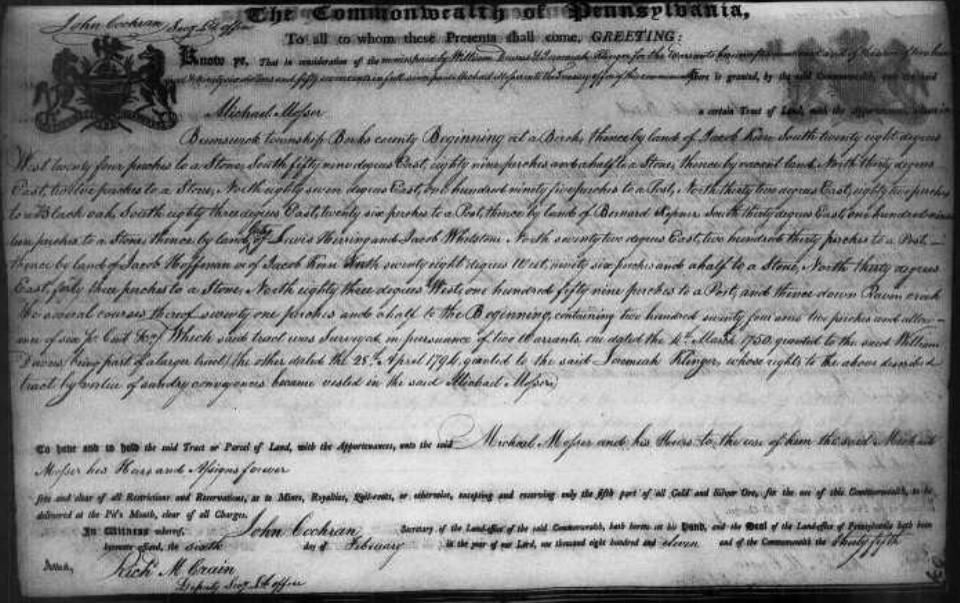 The Commonwealth of Pennsylvania,
John Cochran Secy. Ld. office
To all to whom these Presents shall come, GREETING:
Know ye, That in consideration of the monies paid by William Davis & Jeremiah Klinger for the Warrants
and fifty six cents in full since paid by Michael Mosser into the Treasury office of this commonwealth there is granted, by the said Commonwealth, unto the said
Michael Mosser a certain Tract of Land, with the Appurtenances, situate in
Brunswick township Berks county Beginning at a Birch, thence by land of Jacob Kern South twenty eight degrees
West twenty four perches to a Stone, South fifty nine degrees East, eighty nine perches and a half to a Stone, thence by vacant land, North thirty degrees
East, twelve perches to a Stone, North eighty seven degrees East, one hundred ninety five perches to a Post, North thirty two degrees East, eighty two perches
to a Black oak, South eighty three degrees East, twenty six perches to a Post, thence by land of Bernard Kepner South thirty degrees East, one hundred
perches to a Stone, thence by land of Lewis Herring and Jacob Whetstone North seventy two degrees East, two hundred thirty perches to a Post,
thence by land of Jacob Hoffman or of Jacob Kern North twenty eight degrees West, ninety six perches and a half to a Stone, North thirty degrees
East, forty three perches to a Stone, North eighty three degrees West, one hundred fifty nine perches to a Post, and thence down Raven creek
the several courses thereof seventy one perches and a half to the Beginning, containing two hundred twenty four acres two perches and allow-
ance of six Pr. Cent &c. (Which said tract was Surveyed in pursuance of two Warrants one dated the 4th. March 1750. granted to the said William
Davis (being part of a larger tract) the other dated the 28th. April 1794, granted to the said Jeremiah Klinger, whose rights to the above described
tract by virtue of sundry conveyances became vested in the said Michael Mosser)
To have and to hold the said Tract or Parcel of Land, with the Appurtenances, unto the said Michael Mosser and his Heirs to the use of him the said Michael
Mosser his Heirs and Assigns forever
free and clear of all Restrictions and Reservations, as to Mines, Royalties, Quit-rents, or otherwise, excepting and reserving only the fifth part of all Gold and Silver Ore, for the use of this Commonwealth, to be
delivered at the Pit's Mouth, clear of all Charges.
In Witness whereof, John Cochran Secretary of the Land-office of the said Commonwealth, hath hereto set his Hand, and the Seal of the Land-office of Pennsylvania hath been
hereunto affixed, the sixth day of February in the year of our Lord, one thousand eight hundred and eleven and of the Commonwealth the thirty fifth
Attest, Richd. M. Crain
Deputy Secy. Ld. office